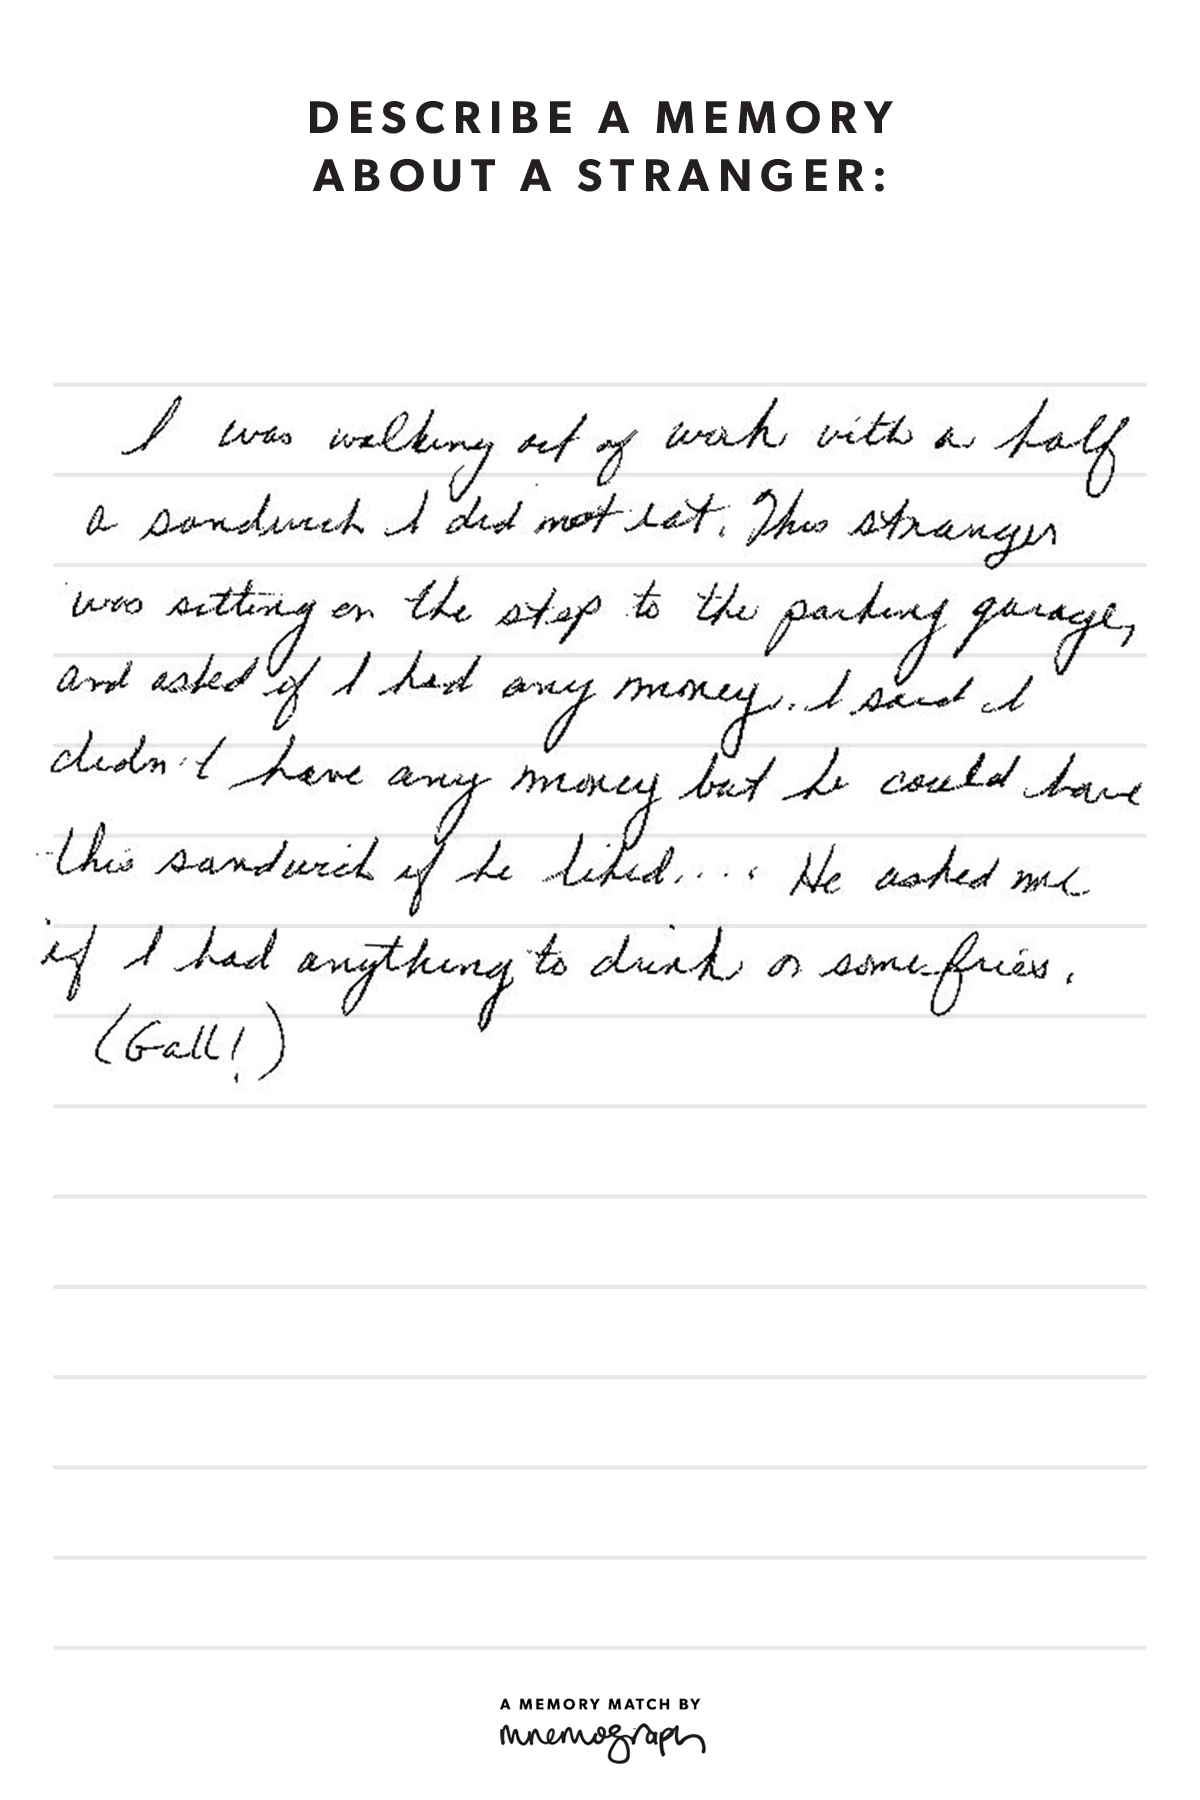 DESCRIBE A MEMORY
ABOUT A STRANGER:
I was walking out of work with a half
a sandwich I did not eat. This stranger
was sitting on the step to the parking garage,
and asked if I had any money. I said I
didn't have any money but he could have
this sandwich if he liked.... He asked me
if I had anything to drink or some fries.
(Gall!)
A MEMORY MATCH BY
mnemograph